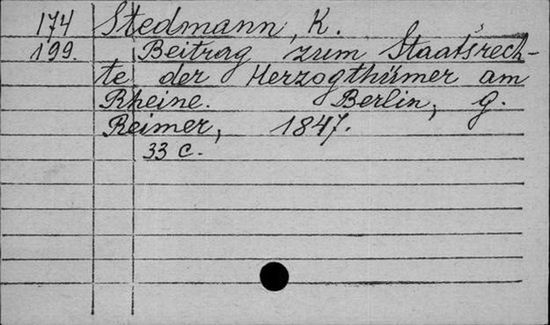 174 Stedmann, K.
199. Beitrag zum Staatsrech-
te der Herzogthümer am
Rheine. Berlin, G.
Reimer, 1847.
33 c.